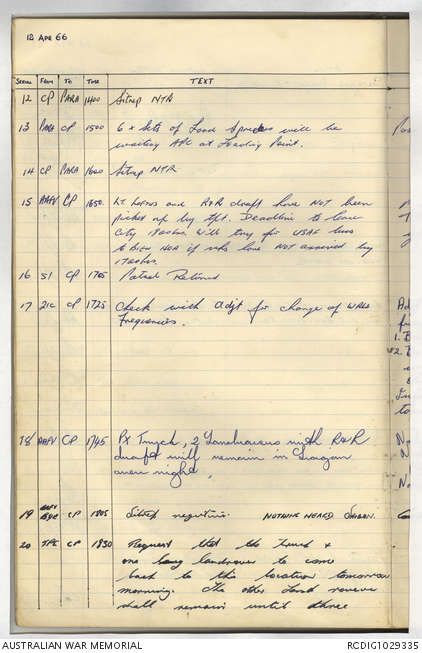 12 APR 66
SERIAL FROM TO TIME TEXT
12 CP PARA 1400 Sitrep NTR
13 PARA CP 1500 6 x sets of Load Spreaders will be
waiting APC at Loading Point.
14 CP PARA 1600 Sitrep NTR
15 AAFV CP 1650. LT and R&R draft have NOT been
picked up by tpt. Deadline to leave
City 1800hrs. Will try for USAF bus
to BIEN HOA if vehs have NOT arrived by
1730hrs.
16 51 CP 1705 Patrol Returned
17 2IC CP 1725 Check with Adjt for change of
Frequencies.
18 AAFV CP 1745 PX Truck, 2 Landrovers with R&R
draft will remain in Saigon
over night.
19 CP 1805 Sitrep negative. NOTHING HEARD
20 CP 1830 Request that the truck &
one long landrover to come
back to this location tomorrow
morning. The other Land rover
shall remain until three
AUSTRALIAN WAR MEMORIAL RCDIG1029335